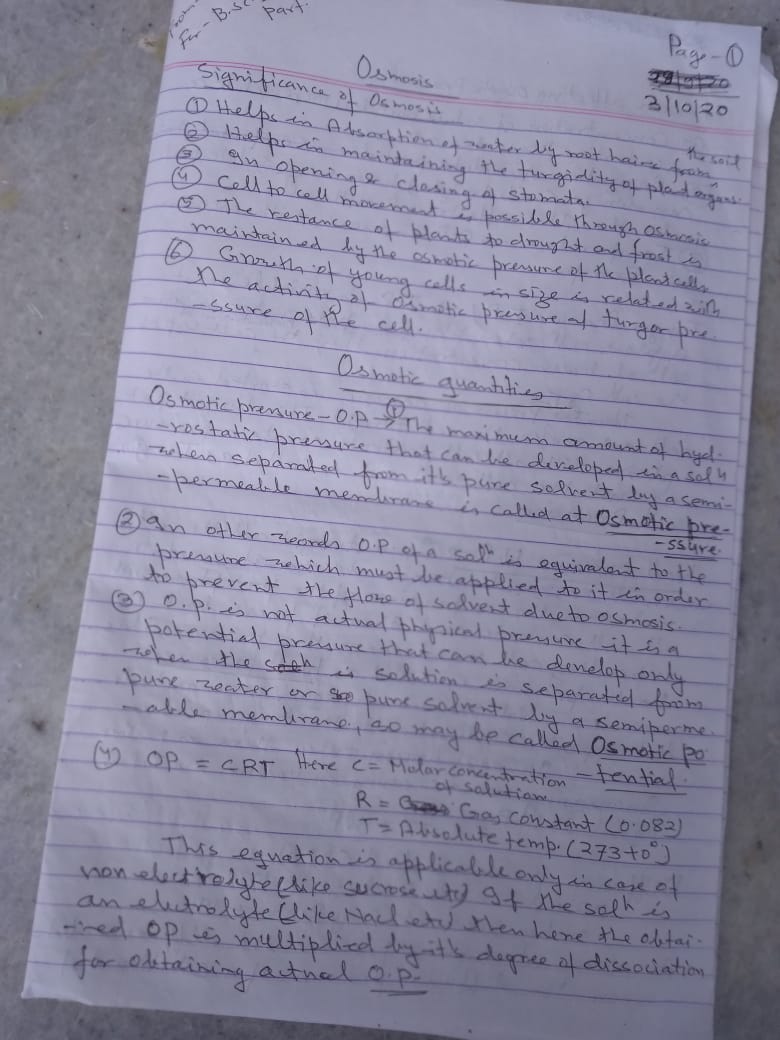 For - B.Sc part.
Page - ①
3/10/20
Osmosis
Significance of Osmosis
① Helps in Absorption of water by root hairs from the soil
② Helps in maintaining the turgidity of plant organs.
③ In opening & closing of stomata.
④ Cell to cell movement is possible through osmosis
⑤ The restance of plants to drought and frost is
maintained by the osmotic pressure of the plant cells
⑥ Growth of young cells in size is related with
the activity of osmotic pressure of turgor pre
-ssure of the cell.
Osmotic quantities
Osmotic pressure - O.P → ① The maximum amount of hyd-
-rostatic pressure that can be developed in a solⁿ
when separated from it's pure solvent by a semi-
-permeable membrane is called at Osmotic pre-
-ssure.
② In other words O.P. of a solⁿ is equivalent to the
pressure which must be applied to it in order
to prevent the flow of solvent due to osmosis.
③ O.P. is not actual physical pressure it is a
potential pressure that can be develop only
when the solution is separated from
pure water or pure solvent by a semiperme
-able membrane, so may be called Osmotic po
-tential.
④ OP = CRT Here C = Molar concentration
of solution
R = Gas constant (0.082)
T = Absolute temp. (273+0°)
This equation is applicable only in case of
non electrolyte (like sucrose etc) If the solⁿ is
an eluctrolyte (like Nacl etc) then here the obtai-
-ined OP is multiplied by it's degree of dissociation
for obtaining actual O.P.